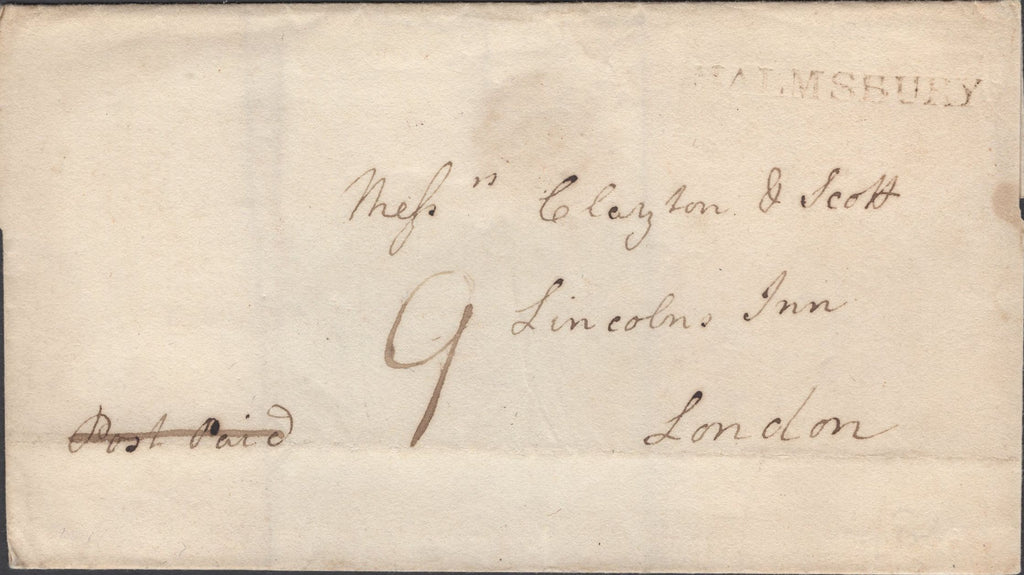 MALMSBURY
Messrs Clayton & Scott
9 Lincolns Inn
Post Paid London